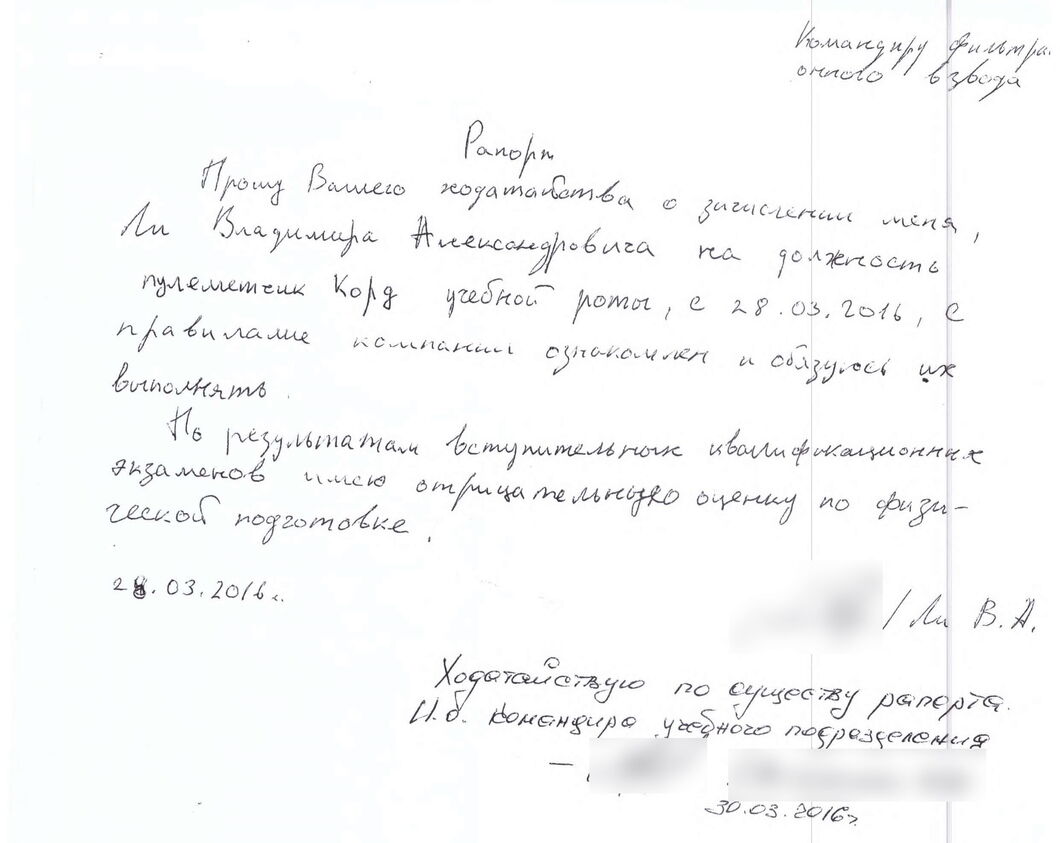 Командиру фильтра-
онного взвода
Рапорт
Прошу Вашего ходатайства о зачислении меня,
Ли Владимира Александровича на должность
пулеметчик Корд учебной роты, с 28.03.2016, с
правилами компании ознакомлен и обязуюсь их
выполнять.
По результатам вступительных квалификационных
экзаменов имею отрицательную оценку по физи-
ческой подготовке.
28.03.2016г.
/ Ли В.А.
Ходатайствую по существу рапорта.
И.о. командира учебного подразделения
30.03.2016г.